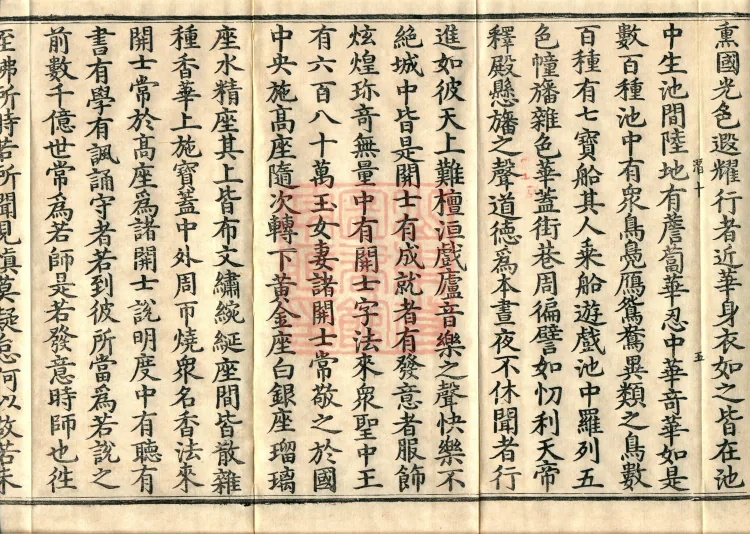 熏國光色遐耀行者近華身衣如之皆在池
中生池間陸地有薝蔔華忍中華奇華如是
數百種池中有衆鳥鳧鴈鴛鴦異類之鳥數
百種有七寶船其人乘船遊戲池中羅列五
色幢旛雜色華蓋街巷周徧譬如忉利天帝
釋殿懸旛之聲道德爲本晝夜不休聞者行
進如彼天上難檀洹戲廬音樂之聲快樂不
絶城中皆是開士有成就者有發意者服飾
炫煌珎奇無量中有開士字法來衆聖中王
有六百八十萬玉女妻諸開士常敬之於國
中央施髙座隨次轉下黄金座白銀座瑠璃
座水精座其上皆布文繡綩綖座間皆散雜
種香華上施寶蓋中外周帀燒衆名香法來
開士常於髙座爲諸開士說明度中有聽有
書有學有諷誦守者若到彼所當爲若說之
前數千億世常爲若師是若發意時師也徃
至佛所時若所聞見愼莫疑怠何以故若未